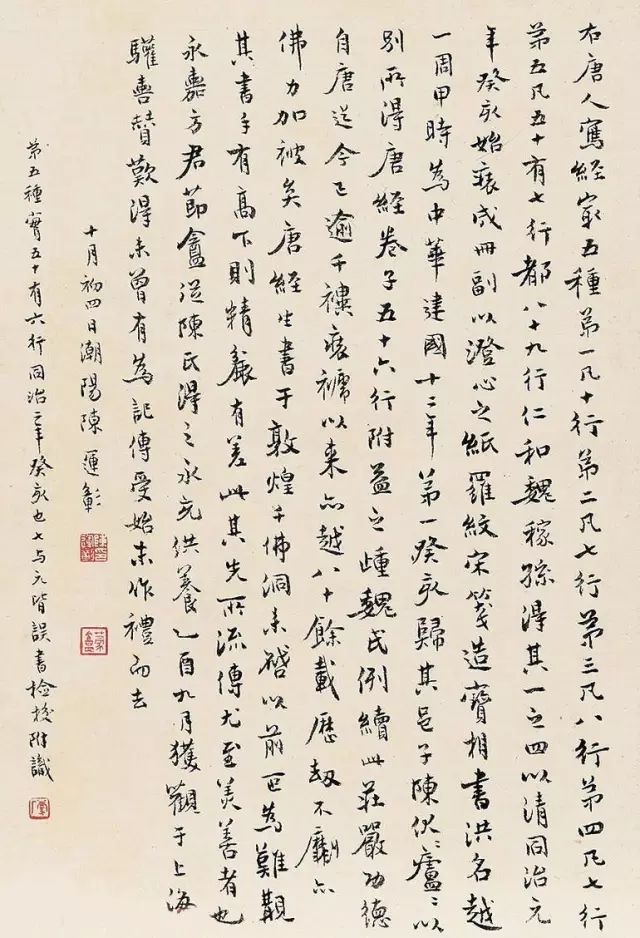 右唐人寫經寂五種第一凡十行第二凡七行第三凡八行第四凡七行
第五凡五十有七行都八十九行仁和魏稼孫得其一之四以清同治元
年癸亥始裝成冊副以澄心之紙羅紋宋箋造寶相書洪名越
一周甲時為中華建國十二年第一癸亥歸其邑子陳伏廬二以
別所得唐經卷子五十六行附益之踵魏氏例續此莊嚴功德
自唐迄今已逾千禩裝褫以来亦越八十餘載歷劫不劘亦
佛力加被矣唐經生書于敦煌千佛洞未啓以前叵為難觀
其書手有高下則精麤有差此其先所流傳尤至美善者也
永嘉方君節盦從陳氏得之永充供養乙酉九月獲觀于上海
驩喜贊歎得未曾有為記傳受始末作禮而去
十月初四日潮陽陳運彰
第五種實五十有六行同治二年癸亥也七与元皆誤書檢校附識